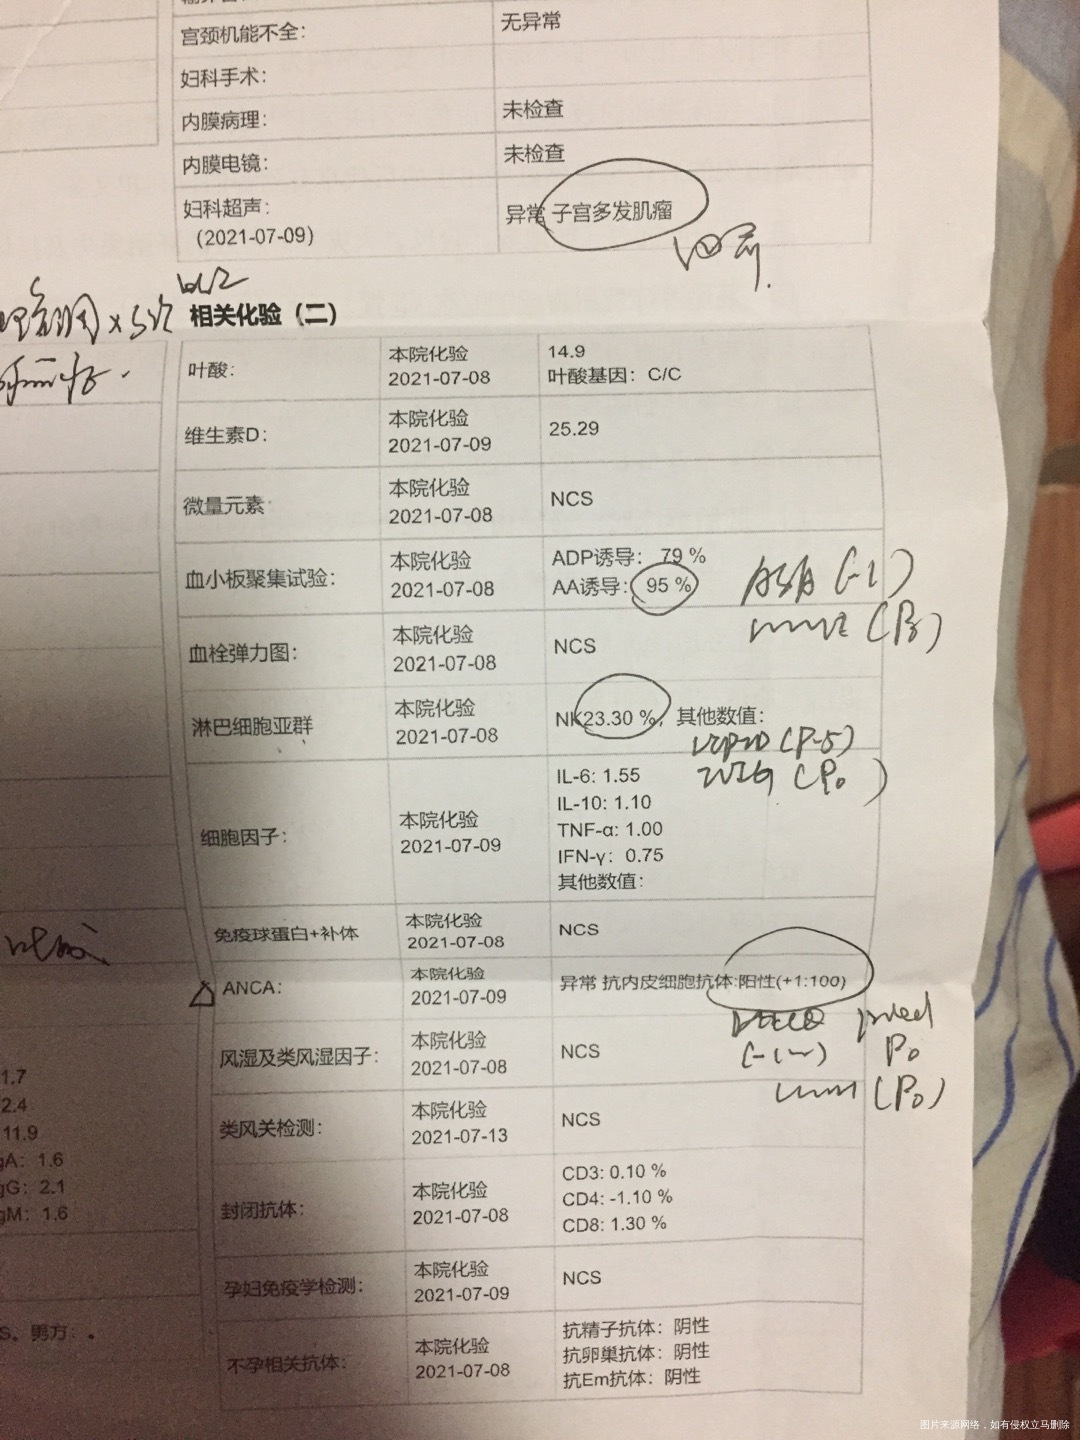 宫颈机能不全： 无异常
妇科手术：
内膜病理： 未检查
内膜电镜： 未检查
妇科超声： 异常 子宫多发肌瘤
（2021-07-09）
相关化验（二）
叶酸： 本院化验 14.9
2021-07-08 叶酸基因：C/C
维生素D： 本院化验 25.29
2021-07-09
微量元素 本院化验 NCS
2021-07-08
血小板聚集试验： 本院化验 ADP诱导： 79 %
2021-07-08 AA诱导： 95 %
血栓弹力图： 本院化验 NCS
2021-07-08
淋巴细胞亚群 本院化验 NK23.30 %，其他数值：
2021-07-08
细胞因子： 本院化验 IL-6: 1.55
2021-07-09 IL-10: 1.10
TNF-α: 1.00
IFN-γ：0.75
其他数值：
免疫球蛋白+补体 本院化验 NCS
2021-07-08
ANCA： 本院化验 异常 抗内皮细胞抗体:阳性(+1:100)
2021-07-09
风湿及类风湿因子： 本院化验 NCS
2021-07-08
类风关检测： 本院化验 NCS
2021-07-13
封闭抗体： 本院化验 CD3: 0.10 %
2021-07-08 CD4: -1.10 %
CD8: 1.30 %
孕妇免疫学检测： 本院化验 NCS
2021-07-09
不孕相关抗体： 本院化验 抗精子抗体：阴性
2021-07-08 抗卵巢抗体：阴性
抗Em抗体：阴性
1.7
2.4
11.9
gA：1.6
gG：2.1
gM：1.6
S。男方：。
图片来源网络，如有侵权立马删除